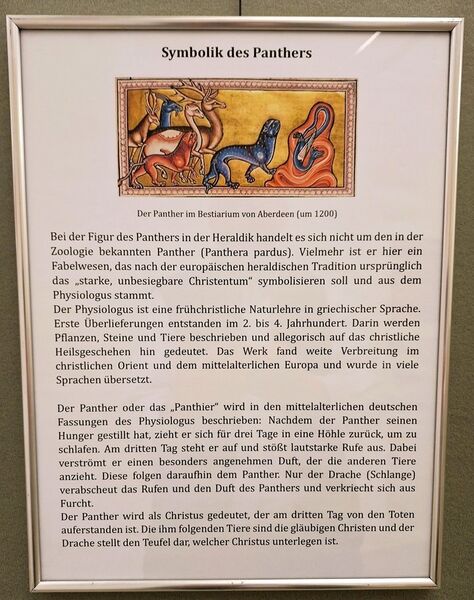 Symbolik des Panthers
Der Panther im Bestiarium von Aberdeen (um 1200)
Bei der Figur des Panthers in der Heraldik handelt es sich nicht um den in der
Zoologie bekannten Panther (Panthera pardus). Vielmehr ist er hier ein
Fabelwesen, das nach der europäischen heraldischen Tradition ursprünglich
das „starke, unbesiegbare Christentum“ symbolisieren soll und aus dem
Physiologus stammt.
Der Physiologus ist eine frühchristliche Naturlehre in griechischer Sprache.
Erste Überlieferungen entstanden im 2. bis 4. Jahrhundert. Darin werden
Pflanzen, Steine und Tiere beschrieben und allegorisch auf das christliche
Heilsgeschehen hin gedeutet. Das Werk fand weite Verbreitung im
christlichen Orient und dem mittelalterlichen Europa und wurde in viele
Sprachen übersetzt.
Der Panther oder das „Panthier“ wird in den mittelalterlichen deutschen
Fassungen des Physiologus beschrieben: Nachdem der Panther seinen
Hunger gestillt hat, zieht er sich für drei Tage in eine Höhle zurück, um zu
schlafen. Am dritten Tag steht er auf und stößt lautstarke Rufe aus. Dabei
verströmt er einen besonders angenehmen Duft, der die anderen Tiere
anzieht. Diese folgen daraufhin dem Panther. Nur der Drache (Schlange)
verabscheut das Rufen und den Duft des Panthers und verkriecht sich aus
Furcht.
Der Panther wird als Christus gedeutet, der am dritten Tag von den Toten
auferstanden ist. Die ihm folgenden Tiere sind die gläubigen Christen und der
Drache stellt den Teufel dar, welcher Christus unterlegen ist.